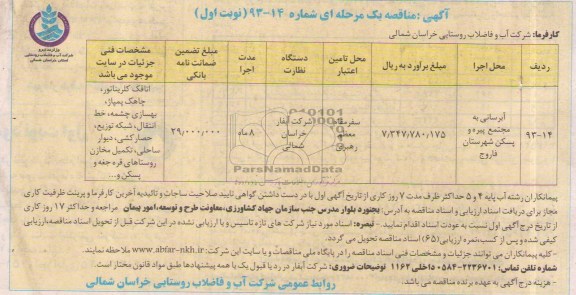 آگهی :مناقصه یک مرحله ای شماره ۱۴-۹۳ (نوبت اول)
کارفرما: شرکت آب و فاضلاب روستایی خراسان شمالی
وزارت نیرو
شرکت آب و فاضلاب روستایی
استان خراسان شمالی
ردیف
محل اجرا
مبلغ برآورد به ریال
محل تامین اعتبار
دستگاه نظارت
مدت اجرا
مبلغ تضمین ضمانت نامه بانکی
مشخصات فنی جزئیات در سایت موجود می باشد
۹۳-۱۴
آبرسانی به مجتمع پیره و پسکن شهرستان فاروج
۷/۳۴۷/۷۸۰/۱۷۵
سفرمقام معظم رهبری
شرکت آبفار خراسان شمالی
۸ ماه
۲۹,۰۰۰,۰۰۰
اتاقک کلریناتور، چاهک پمپاژ، بهسازی چشمه، خط انتقال، شبکه توزیع، حصارکشی، دیوار ساحلی، تکمیل مخازن روستاهای قره جغه و پسکن و...
ParsNamadData
پیمانکاران رشته آب پایه ۴ و ۵ حداکثر ظرف مدت ۷ روز کاری از تاریخ آگهی اول با در دست داشتن گواهی تایید صلاحیت ساجات و تائیدیه آخرین کارفرما و پرینت ظرفیت کاری
مجاز برای دریافت اسناد ارزیابی و اسناد مناقصه به آدرس: بجنورد بلوار مدرس جنب سازمان جهاد کشاورزی، معاونت طرح و توسعه، امور پیمان مراجعه و حداکثر ۱۷ روز کاری
از تاریخ درج آگهی اول نسبت به عودت اسناد اقدام نمایید - تبصره: اسناد مورد نیاز شرکت های تازه تاسیس و یا ارزیابی نشده در این شرکت قبل از تحویل اسناد مناقصه،ارزیابی
کیفی شده و پس از کسب نمره ارزیابی (۶۵) اسناد مناقصه تحویل می گردد.
-کلیه پیمانکاران می توانند جزئیات و مشخصات فنی اسناد مناقصه را در پایگاه ملی مناقصات و یا سایت این شرکت: www.abfar-nkh.ir ملاحظه نمایند.
شماره تلفن تماس: ۲۲۳۶۷۰۱-۰۵۸۴ داخلی ۱۱۶۲ توضیحات ضروری: شرکت آبفار در رد یا قبول یک یا همه پیشنهادها طبق مواد قانون مختار است.
- هزینه درج آگهی به عهده برنده مناقصه می باشد.
روابط عمومی شرکت آب و فاضلاب روستایی خراسان شمالی